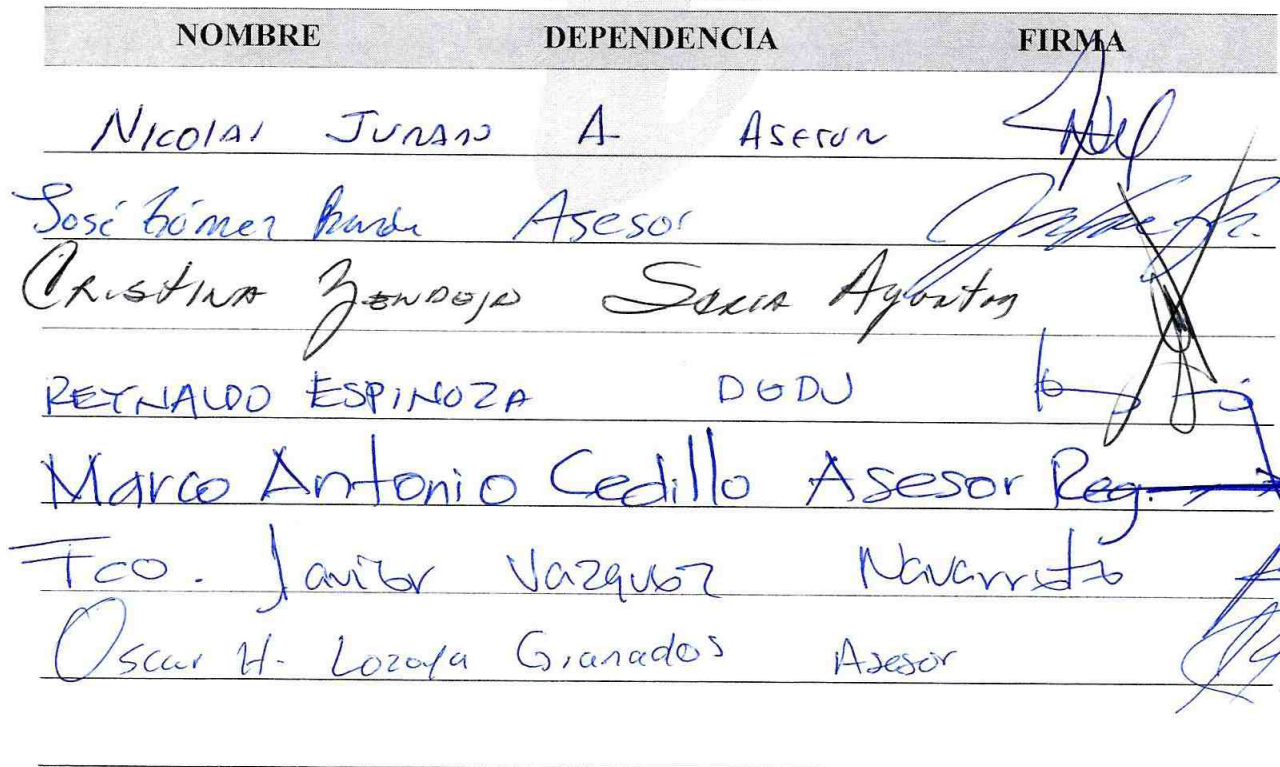 NOMBRE DEPENDENCIA FIRMA
NICOLAI JURADO A ASESOR
José Gómez Asesor
CRISTINA ZENDEJO
REYNALDO ESPINOZA DGDU
Marco Antonio Cedillo Asesor Reg.
Fco. Javier Vazquez Navarrete
Oscar H. Lozoya Granados Asesor